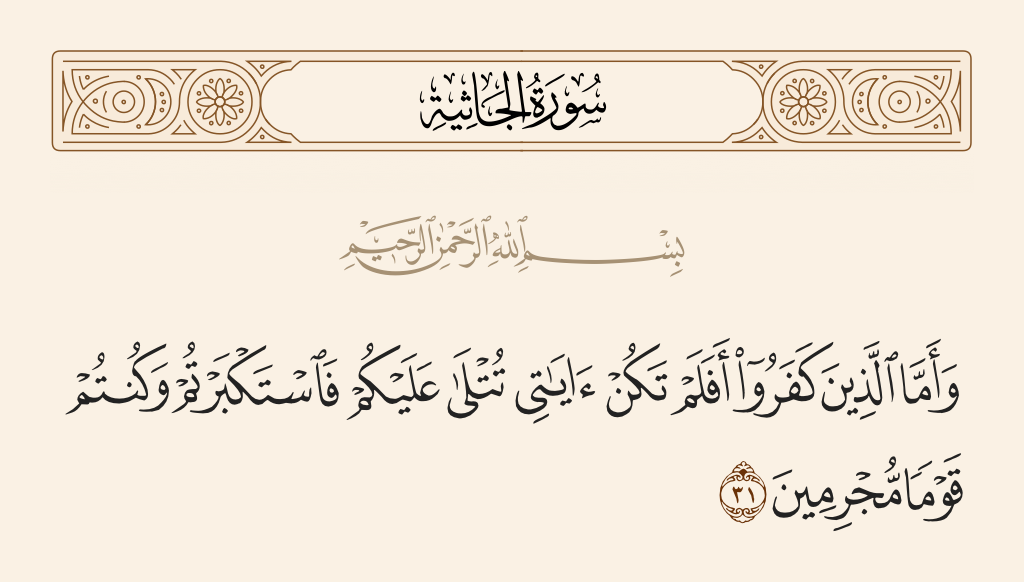 سُورَةُ الجَاثِيةِ
بِسْمِ ٱللَّهِ ٱلرَّحْمَٰنِ ٱلرَّحِيمِ
وَأَمَّا ٱلَّذِينَ كَفَرُوٓا۟ أَفَلَمْ تَكُنْ ءَايَٰتِى تُتْلَىٰ عَلَيْكُمْ فَٱسْتَكْبَرْتُمْ وَكُنتُمْ
قَوْمًا مُّجْرِمِينَ ٣١